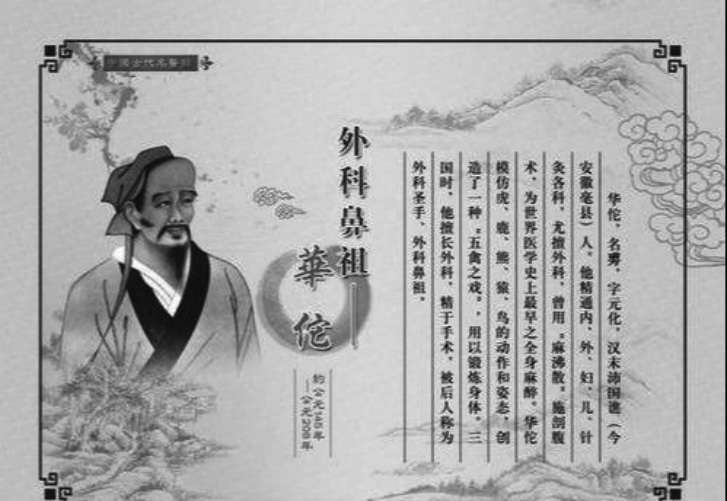 中国古代名医
外科鼻祖——
華佗
约公元145年
—公元208年
华佗，名旉，字元化，汉末沛国谯（今
安徽亳县）人。他精通内、外、妇、儿、针
灸各科，尤擅外科，曾用“麻沸散”施剖腹
术，为世界医学史上最早之全身麻醉。华佗
模仿虎、鹿、熊、猿、鸟的动作和姿态，创
造了一种“五禽之戏”，用以锻炼身体。三
国时，他擅长外科，精于手术，被后人称为
外科圣手、外科鼻祖。